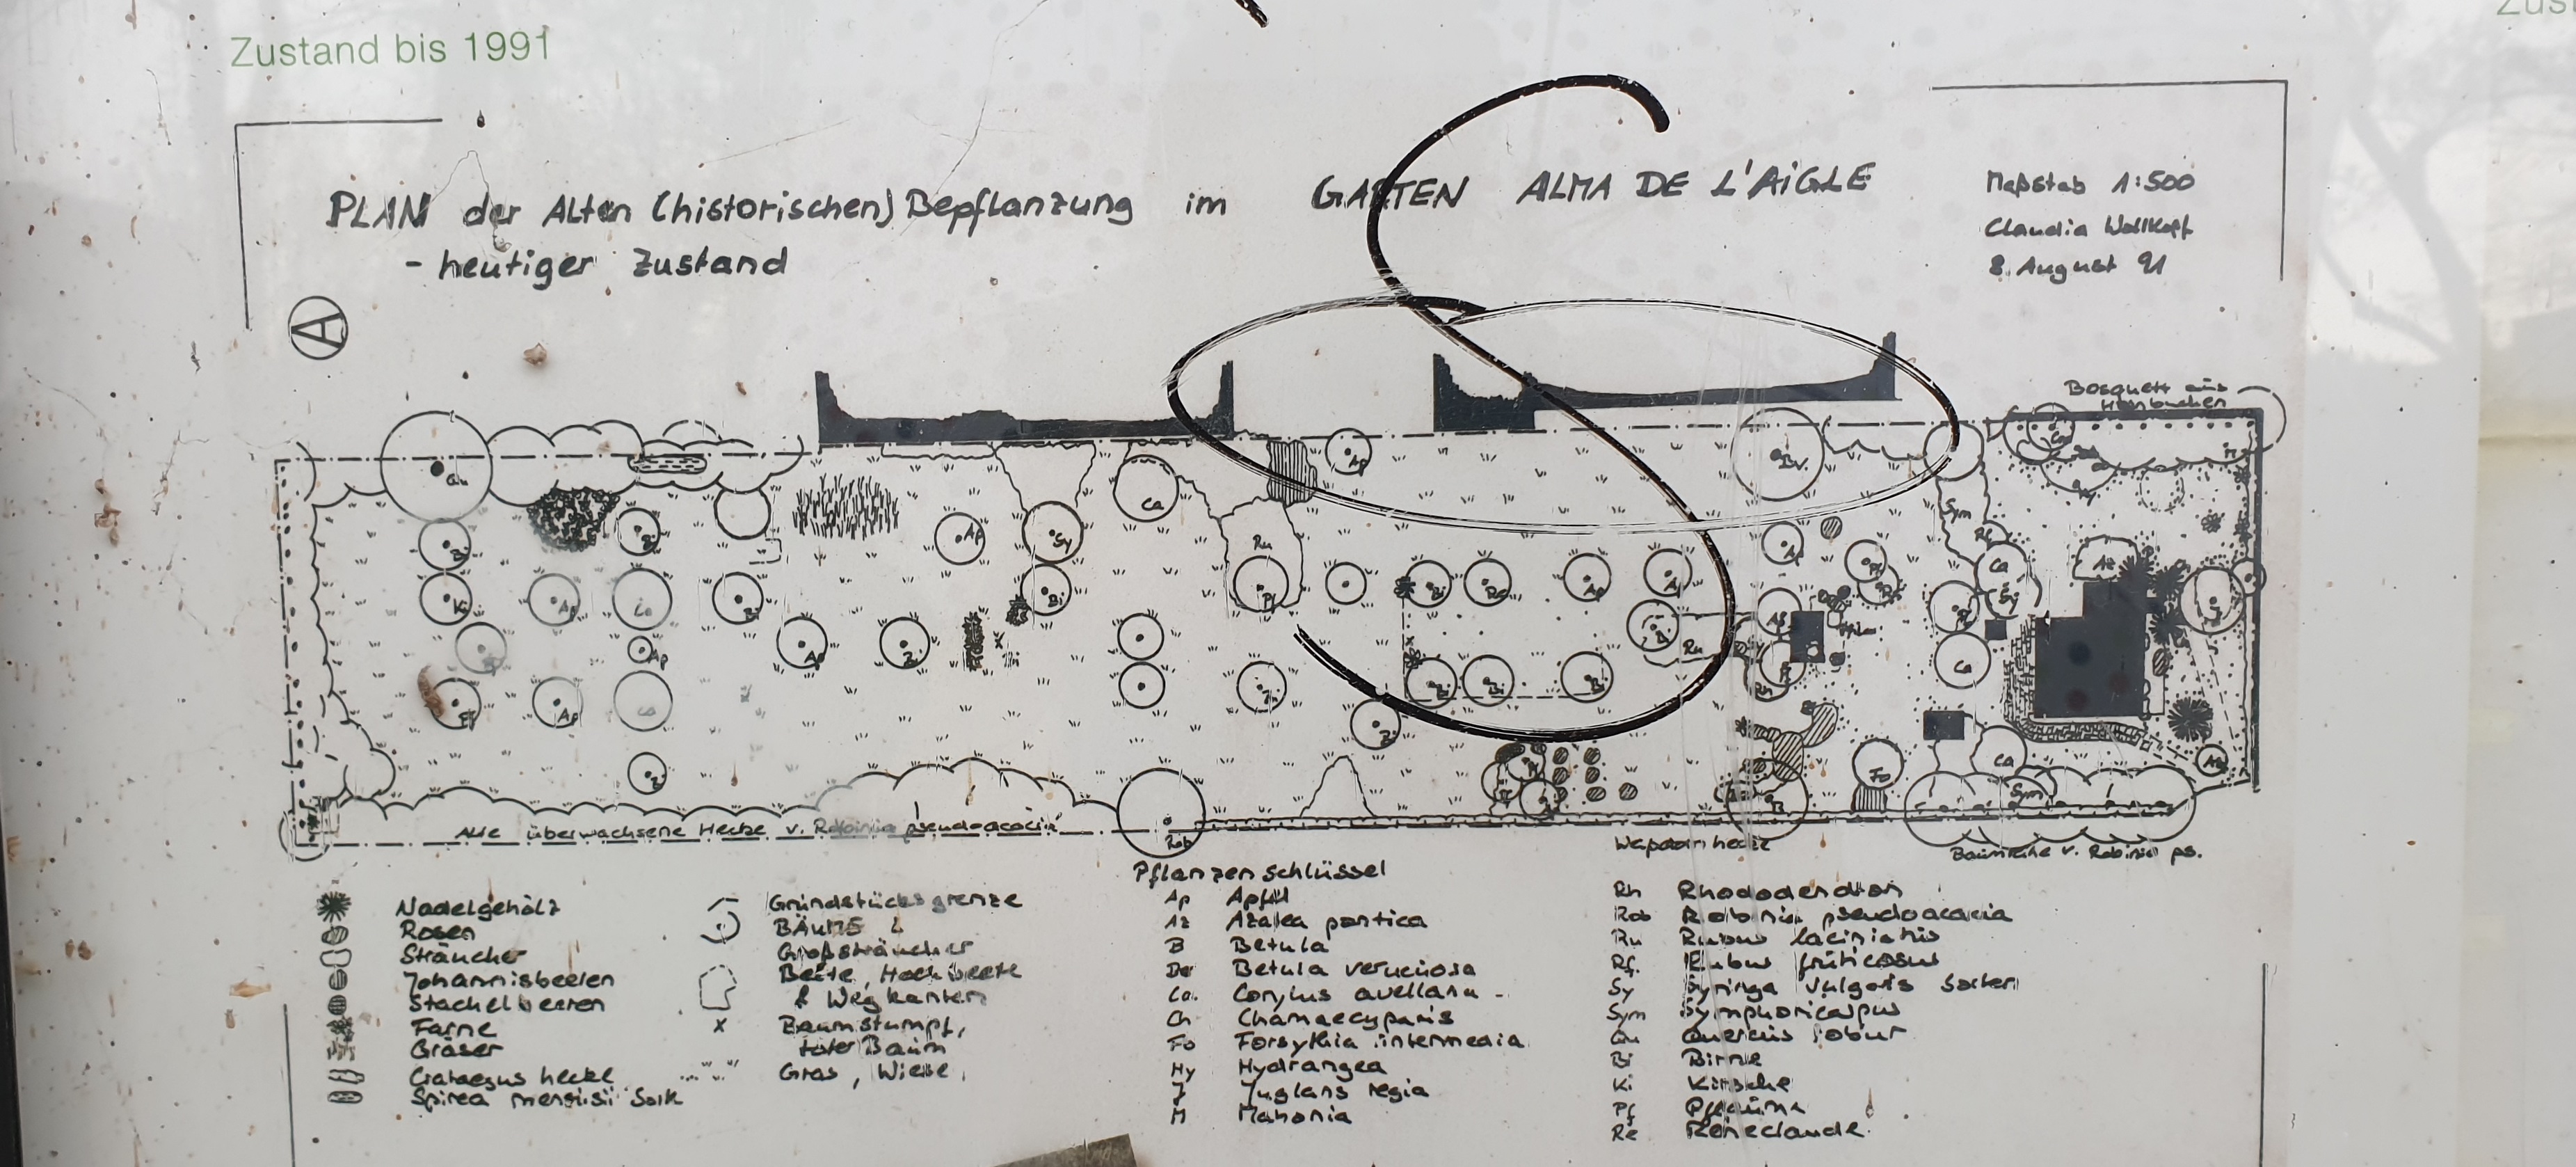 Zustand bis 1991
Zust
PLAN der Alten (historischen) Bepflanzung im GARTEN ALMA DE L'AiGLE
- heutiger Zustand
Maßstab 1:500
Claudia Wollkopf
8. August 91
A
Bosquett aus
Hainbuchen
Alte überwachsene Hecke v. Robinia pseudoacacia
Rob
Weißdornhecke
Baumreihe v. Robinia ps.
Nadelgehölz
Rosen
Sträucher
Johannisbeeren
Stachelbeeren
Farne
Gräser
Crataegus hecke
Spirea
Grundstücksgrenze
BÄUME &
Großsträucher
Beete, Hochbeete
& Wegkanten
x Baumstumpf,
toter Baum
Gras, Wiese,
Pflanzenschlüssel
Ap Apfel
Az Azalea pontica
B Betula
Betula veruciosa
Co. Corylus avellana
Ch Chamaecyparis
Fo Forsythia intermedia
Hy Hydrangea
J Juglans regia
M Mahonia
Rh Rhododendron
Rob Robinia pseudoacacia
Ru Rubus laciniatus
Rf. Rubus fruticosus
Sy Syringa vulgaris Sorten
Sym Symphoricarpus
Qu Quercus robur
Bi Birne
Ki Kirsche
Pf Pflaume
Re Reneclaude